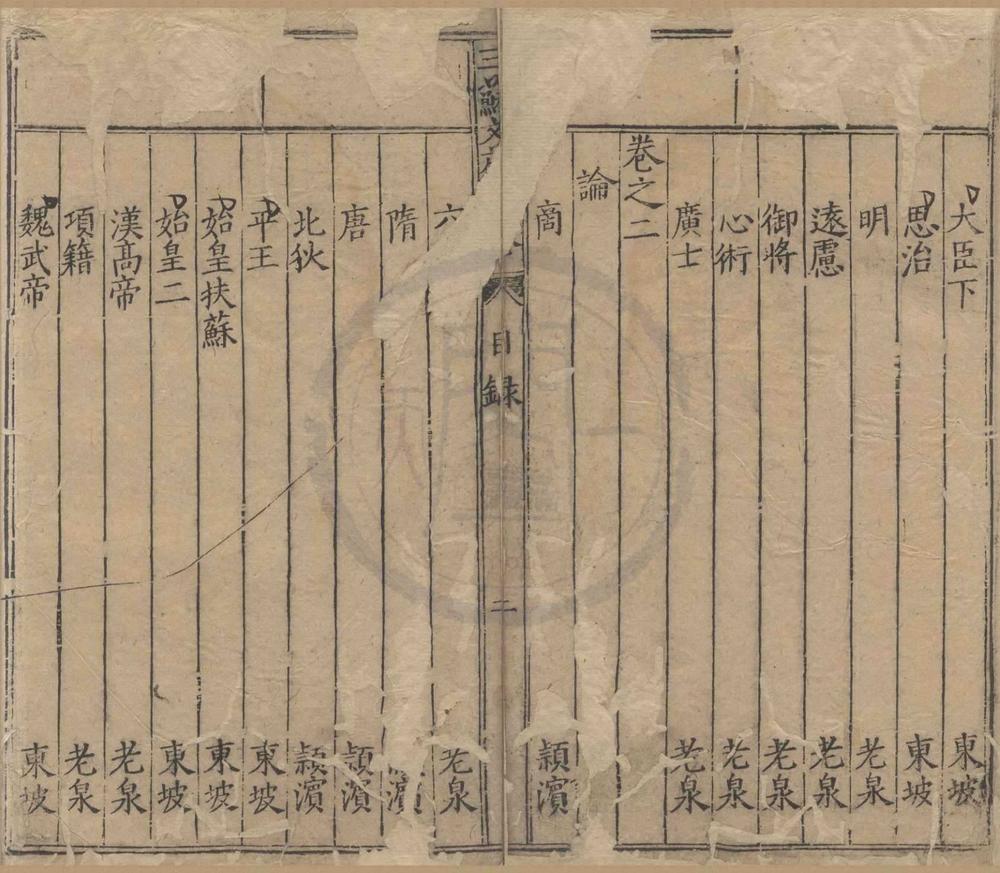 大臣下 東坡
思治 東坡
明 老泉
遠慮 老泉
御將 老泉
心術 老泉
廣士 老泉
卷之二
論
商 穎濵
三蘇文
目錄
二
六 老泉
隋 濵
唐 穎濵
北狄 穎濵
平王 東坡
始皇扶蘇 東坡
始皇二 東坡
漢高帝 老泉
項籍 老泉
魏武帝 東坡